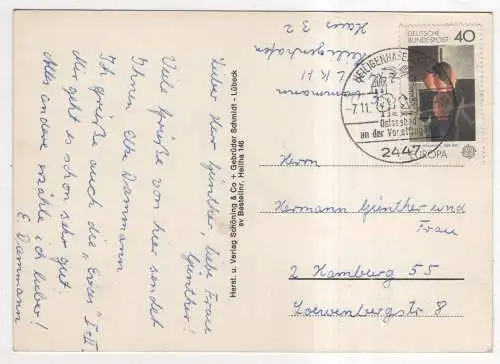 Lieber Herr Günther, liebe Frau
Günther!
Viele Grüße von hier sendet
Ihnen Elke Dammann
Ich grüße auch die „Exes" I+II.
Mir geht es schon sehr gut.
Alles andere erzähle ich lieber!
E. Dammann
Herst. u. Verlag Schöning & Co + Gebrüder Schmidt - Lübeck
sv Bestellnr. Heilha 146
Dammann
L K H
Heiligenhafen
Haus 3 2
DEUTSCHE
BUNDESPOST
40
EUROPA
HEILIGENHAFEN
-7.11.
Ostseebad
an der Vogelfluglinie
2447
Herrn
Hermann Günther und
Frau
2 Hamburg 55
Loewenbergstr. 8